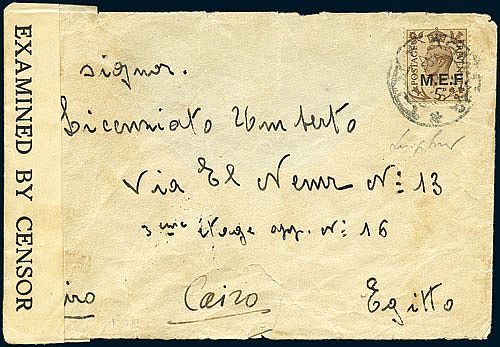 EXAMINED BY CENSOR
POSTAGE
M.E.F.
5
Signor.
Licenziato Umberto
Via El Nemr N: 13
3me étage app. N: 16
iro Cairo Egitto